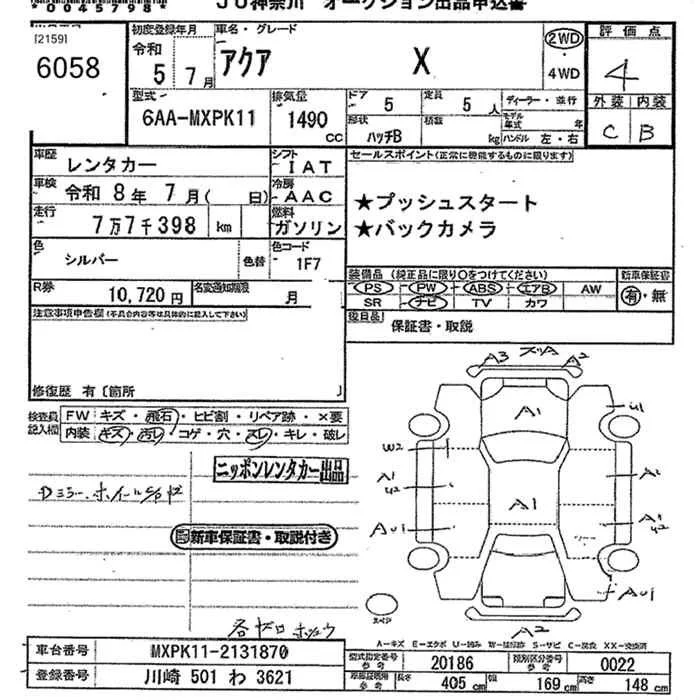 *0045798*
JU神奈川 オークション出品申込書
[2159]
6058
初度登録年月
令和
5 7月
車名・グレード
アクア X
2WD
4WD
評価点
4
外装 内装
C B
型式
6AA-MXPK11
排気量
1490
CC
ドア
5
定員
5 人
形状
ハッチB
積数
kg
ディーラー・並行
モデル年式 年
ハンドル 左・右
車歴
レンタカー
シフト
IAT
セールスポイント(正常に機能するものに限ります)
車検
令和 8年 7月( 日)
冷房
AAC
★プッシュスタート
★バックカメラ
走行
7万7千398 km
燃料
ガソリン
色
シルバー
色替
色コード
1F7
装備品 (純正品に限り○をつけてください)
新車保証書
PS PW ABS エアB AW
SR ナビ TV カワ
有・無
R券
10,720円
名変通知期限
月
後日品
保証書・取説
注意事項申告欄(不具合内容等は具体的に記入して下さい)
修復歴 有〔箇所 〕
検査員記入欄
FW キズ・飛石・ヒビ割・リペア跡・×要
内装 キズ・汚レ・コゲ・穴・スレ・キレ・破レ
ニッポンレンタカー出品
新車保証書・取説付き
A3
A2
A1
U1
W2
A1
U2
A1
A1
AU1
AU1
A2
スペア
A-キズ E-エクボ U-凹み W-補修跡 S-サビ C-腐食 XX-交換済
車台番号
MXPK11-2131870
登録番号
川崎 501 わ 3621
型式指定番号
参考
20186
類別区分番号
参考
0022
参考
長さ
405 cm
幅
169 cm
高さ
148 cm